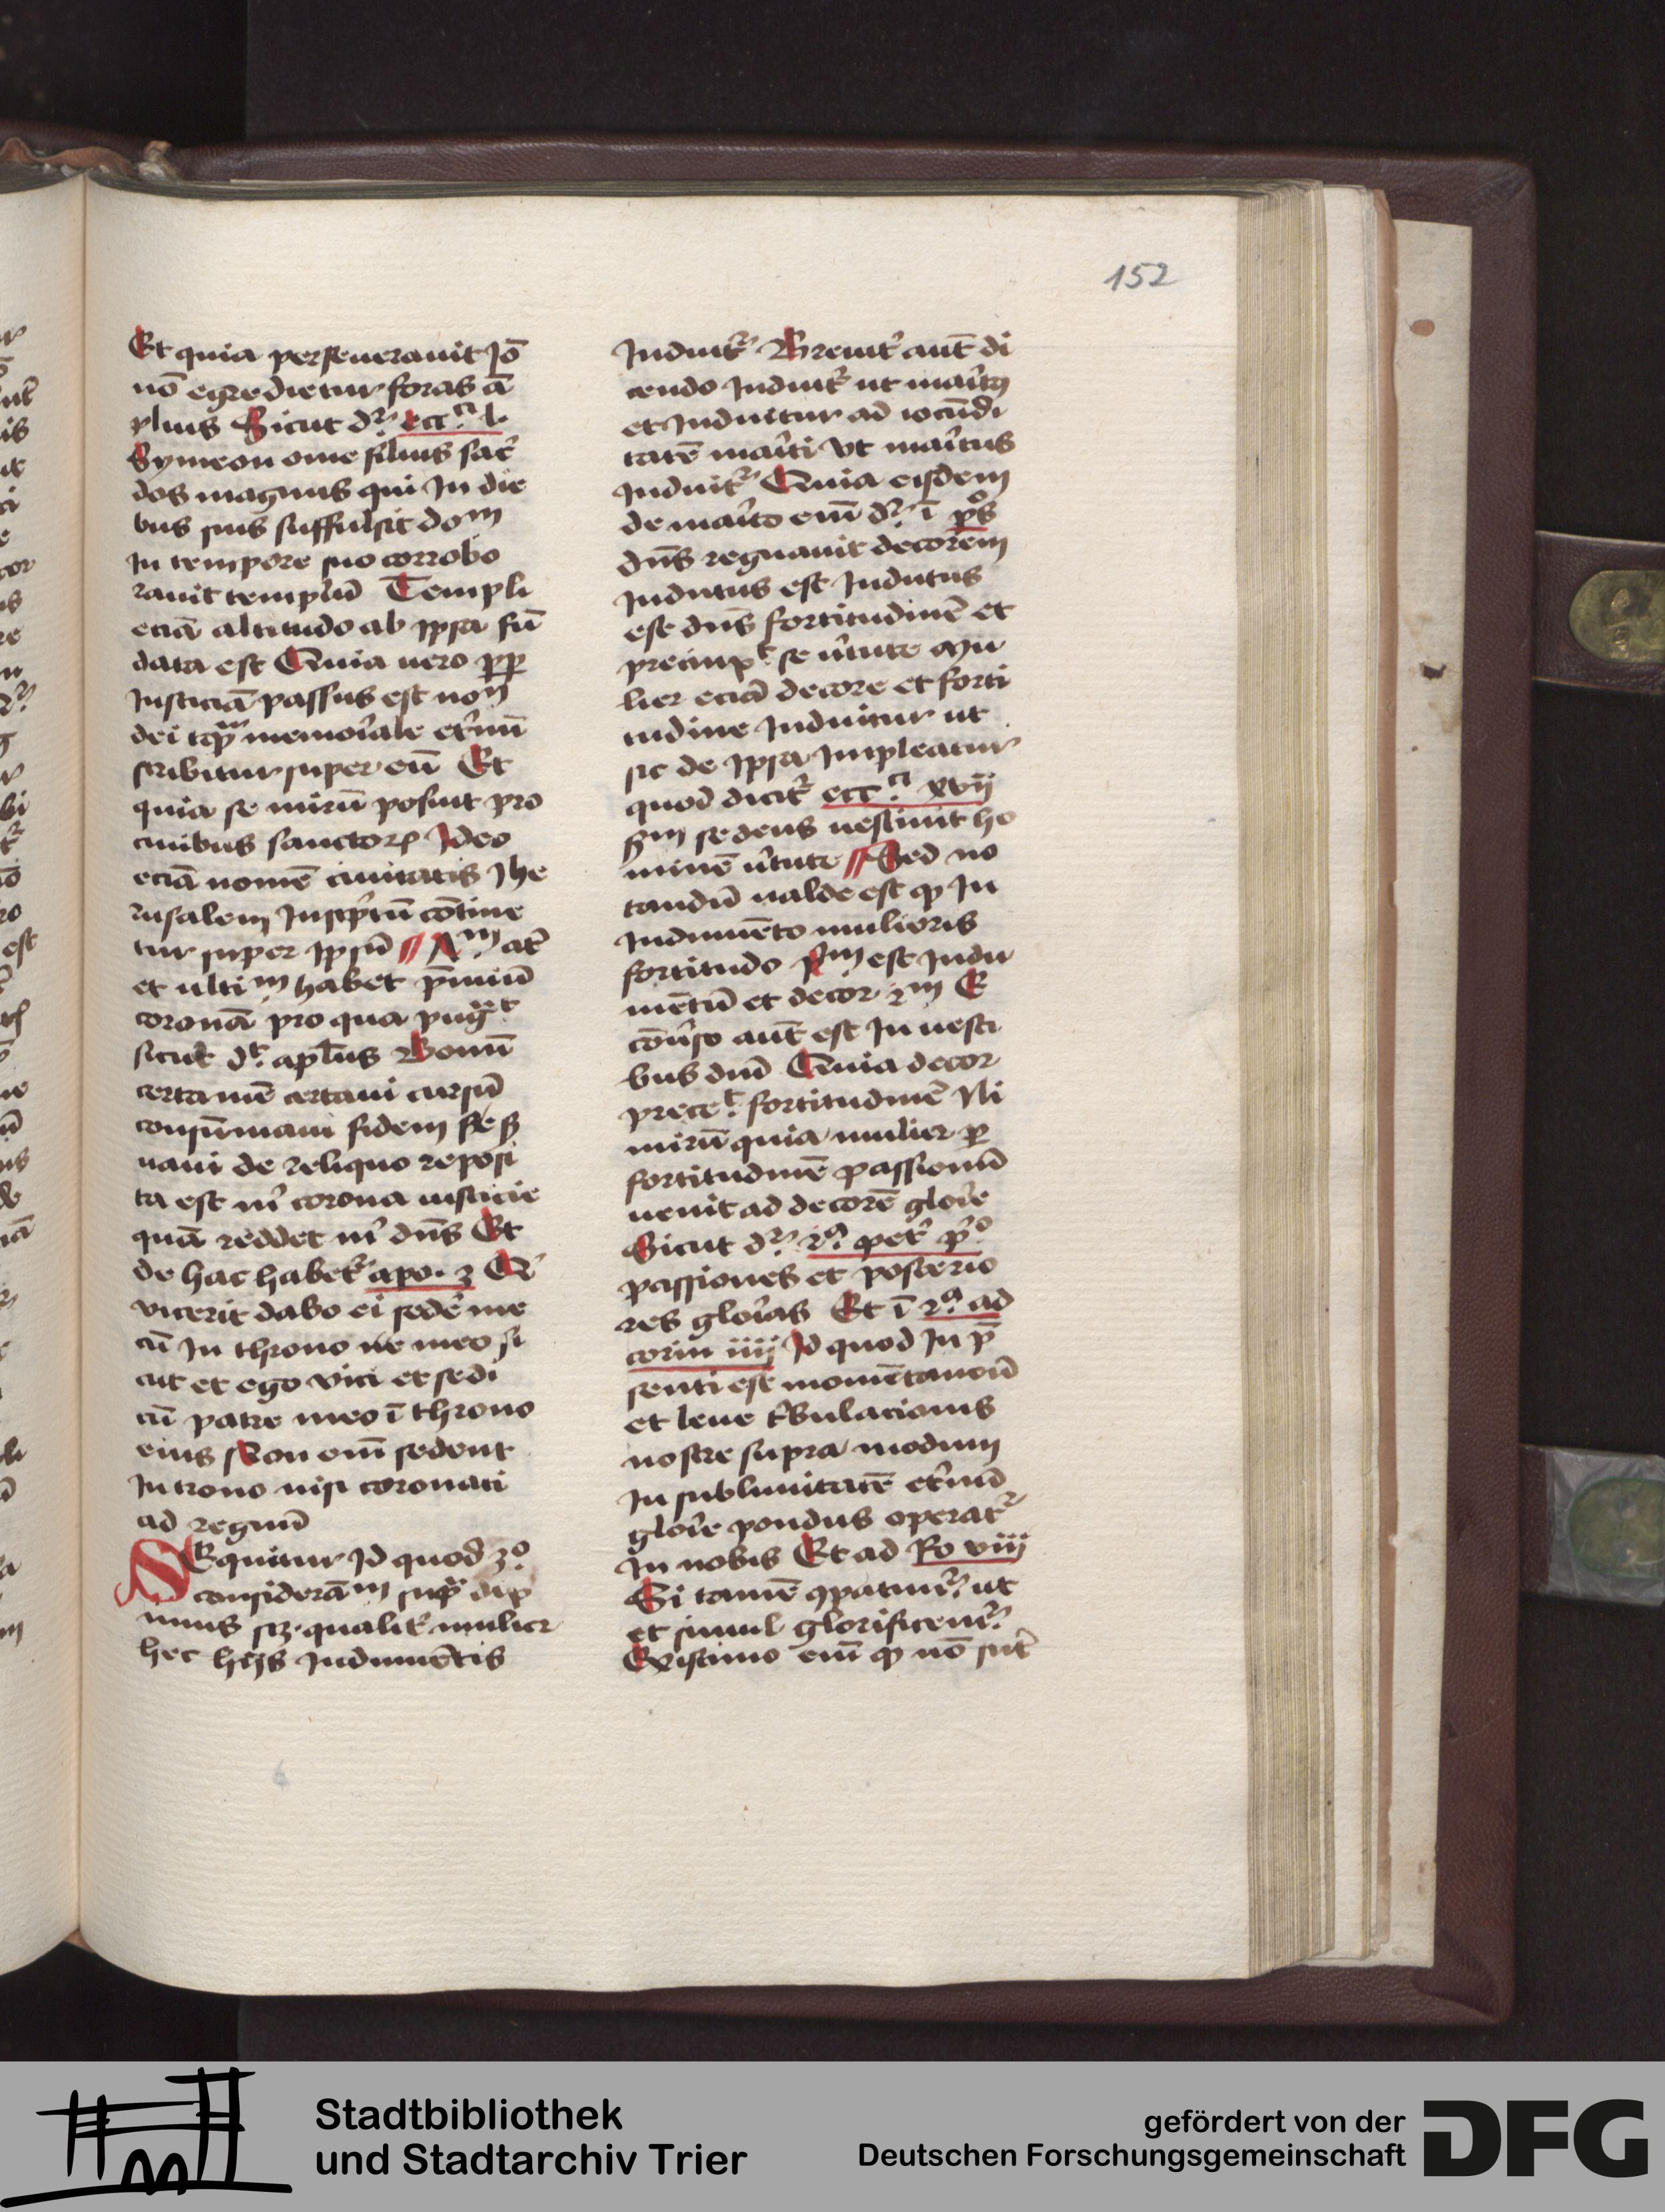 152
Et quia perseuerauit Jō
nō egredietur foras ā
plius Sicut dr̄ ecc͛ͣ l.
Symeon onie filius sac̄
dos magnus qui In die
bus suis suffulsit doᵐ
In tempore suo corrobo
rauit templū Templi
eciā altitudo ab ipsa fū
data est Quia uero pp
Justiciā passus est noⁿ
dei memoīale et̄nū
scribitur super eū Et
quia se murū posuit pro
ciuibus sanctoꝝ Ideo
eciā nomē ciuitatis Jhe
rusalem Inscp̄tū cōtine
tur super ipsū Aᵐ at̄
et ultiᵐ habet p̄miū
coronā pro qua pugᵃᵗ
sicut dᵗ apl̄us Bonū
certamē certaui cursū
consūmaui fidem ser
uaui de reliquo reposi
ta est m̄ corona iusticie
quā reddet m̄ dn̄s Et
de hac habet᷑ apo. 3 Q̄
vicerit dabo ei sedē me
cū In throno meo si
cut et ego vici et sedi
cū patre meo ī throno
eius Non eni᷑ sedent
In trono nisi coronati
ad regnū
SEquitur Id quod 3ᵒ
considerāᵐ supᵃ dix
imus scꝫ. qualit᷑ mulier
hec hijs Indumētis
Induit᷑ Breuit᷑ aut̄ di
cendo Induit᷑ ut maīt9
et Induitur ad iocūdi
tatē maīti vt maītus
Induit᷑ Quia eisdem
de maīto eni᷑ dr̄ ī pōs
dn̄s regnauit decorem
Indutus est Indutus
est dn̄s fortitudinē et
precinxᵗ se ūtute Mu
lier eciā decore et forti
tudine Induitur ut
sic de ipsa Impleatur
quod dicit᷑ eccᵃ xvij
sedens uestiuit ho
minē ūtute Sed no
tandū ualde est ꝙ In
Indumēto mulieris
fortitudo pᵐ est Indu
mētū et decor 2ᵐ E
cōūso aut̄ est In uesti
bus dn̄i Quia decor
preceᵗ fortitudinē Ni
mirū quia mulier ꝑ
fortitudinē passionū
uenit ad decorē gloīe
Sicut dr̄ 2ᵃ pet᷑ p̄ᵒ
passiones et posterio
res gloīas Et ī 2ᵃ ad
corin iiij Id quod In p̄
senti est momētaneū
et leue t᷑bulacionis
nostre supra modum
In sublimitatē et̄nū
gloīe pondus operat᷑
In nobis Et ad Ro viij
Si tamē ꝯpatim᷑ ut
et simul glorificem᷑
Existimo eni᷑ ꝙ nō sūt
Stadtbibliothek
und Stadtarchiv Trier
gefördert von der
Deutschen Forschungsgemeinschaft
DFG